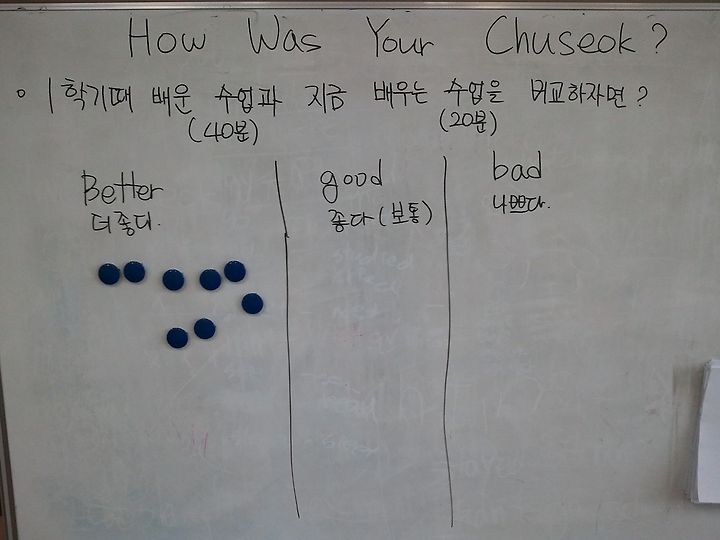 How Was Your Chuseok?
◦ 1학기때 배운 수업과 지금 배우는 수업을 비교하자면?
(40분) (20분)
Better good bad
더좋다. 좋다(보통) 나쁘다.